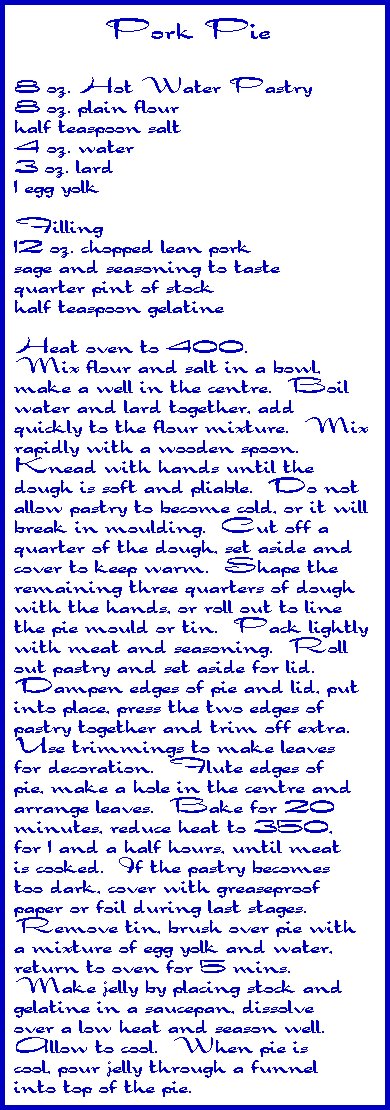 Pork Pie
8 oz. Hot Water Pastry
8 oz. plain flour
half teaspoon salt
4 oz. water
3 oz. lard
1 egg yolk
Filling
12 oz. chopped lean pork
sage and seasoning to taste
quarter pint of stock
half teaspoon gelatine
Heat oven to 400.
Mix flour and salt in a bowl,
make a well in the centre. Boil
water and lard together, add
quickly to the flour mixture. Mix
rapidly with a wooden spoon.
Knead with hands until the
dough is soft and pliable. Do not
allow pastry to become cold, or it will
break in moulding. Cut off a
quarter of the dough, set aside and
cover to keep warm. Shape the
remaining three quarters of dough
with the hands, or roll out to line
the pie mould or tin. Pack lightly
with meat and seasoning. Roll
out pastry and set aside for lid.
Dampen edges of pie and lid, put
into place, press the two edges of
pastry together and trim off extra.
Use trimmings to make leaves
for decoration. Flute edges of
pie, make a hole in the centre and
arrange leaves. Bake for 20
minutes, reduce heat to 350,
for 1 and a half hours, until meat
is cooked. If the pastry becomes
too dark, cover with greaseproof
paper or foil during last stages.
Remove tin, brush over pie with
a mixture of egg yolk and water,
return to oven for 5 mins.
Make jelly by placing stock and
gelatine in a saucepan, dissolve
over a low heat and season well.
Allow to cool. When pie is
cool, pour jelly through a funnel
into top of the pie.